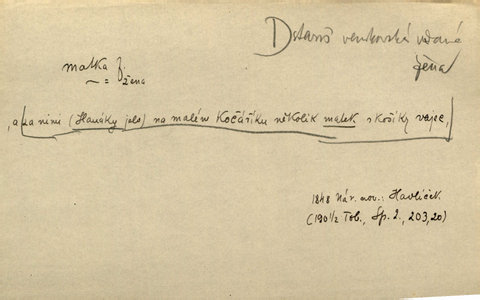 venkovská vdaná
žena
matka f.
~ = žena
„a za nimi (Hanáky jelo) na malém kočáříku několik matek s košíky vajec,
1848 Nár. nov.: Havlíček
(190½ Tob., Sp. 2., 203,20)